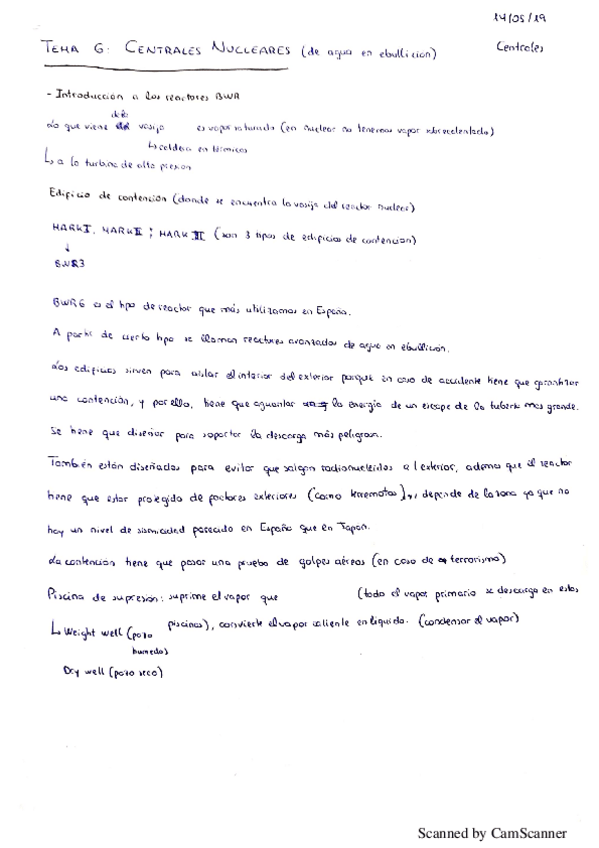 14/05/19
TEMA 6: CENTRALES NUCLEARES (de agua en ebullición)
Centrales
- Introducción a los reactores BWR
de la
Lo que viene vasija es vapor saturado (en nuclear no tenemos vapor sobrecalentado)
↳ caldera en térmicas
↳ a la turbina de alta presión
Edificio de contención (donde se encuentra la vasija del reactor nuclear)
MARK I, MARK II ; MARK III (son 3 tipos de edificios de contención)
↓
BWR3
BWR6 es el tipo de reactor que más utilizamos en España.
A partir de cierto tipo se llaman reactores avanzados de agua en ebullición.
Los edificios sirven para aislar el interior del exterior porque en caso de accidente tiene que garantizar
una contención, y por ello, tiene que aguantar la energía de un escape de la tubería más grande.
Se tiene que diseñar para soportar la descarga más peligrosa.
También están diseñados para evitar que salgan radionucleidos al exterior, además que el reactor
tiene que estar protegido de factores exteriores (como terremotos), depende de la zona ya que no
hay un nivel de sismicidad parecido en España que en Japón.
La contención tiene que pasar una prueba de golpes aéreos (en caso de terrorismo)
Piscina de supresión: suprime el vapor que (todo el vapor primario se descarga en estas
piscinas), convierte el vapor caliente en líquido. (condensar el vapor)
↳ Weight well (pozo
húmedo)
Dry well (pozo seco)
Scanned by CamScanner